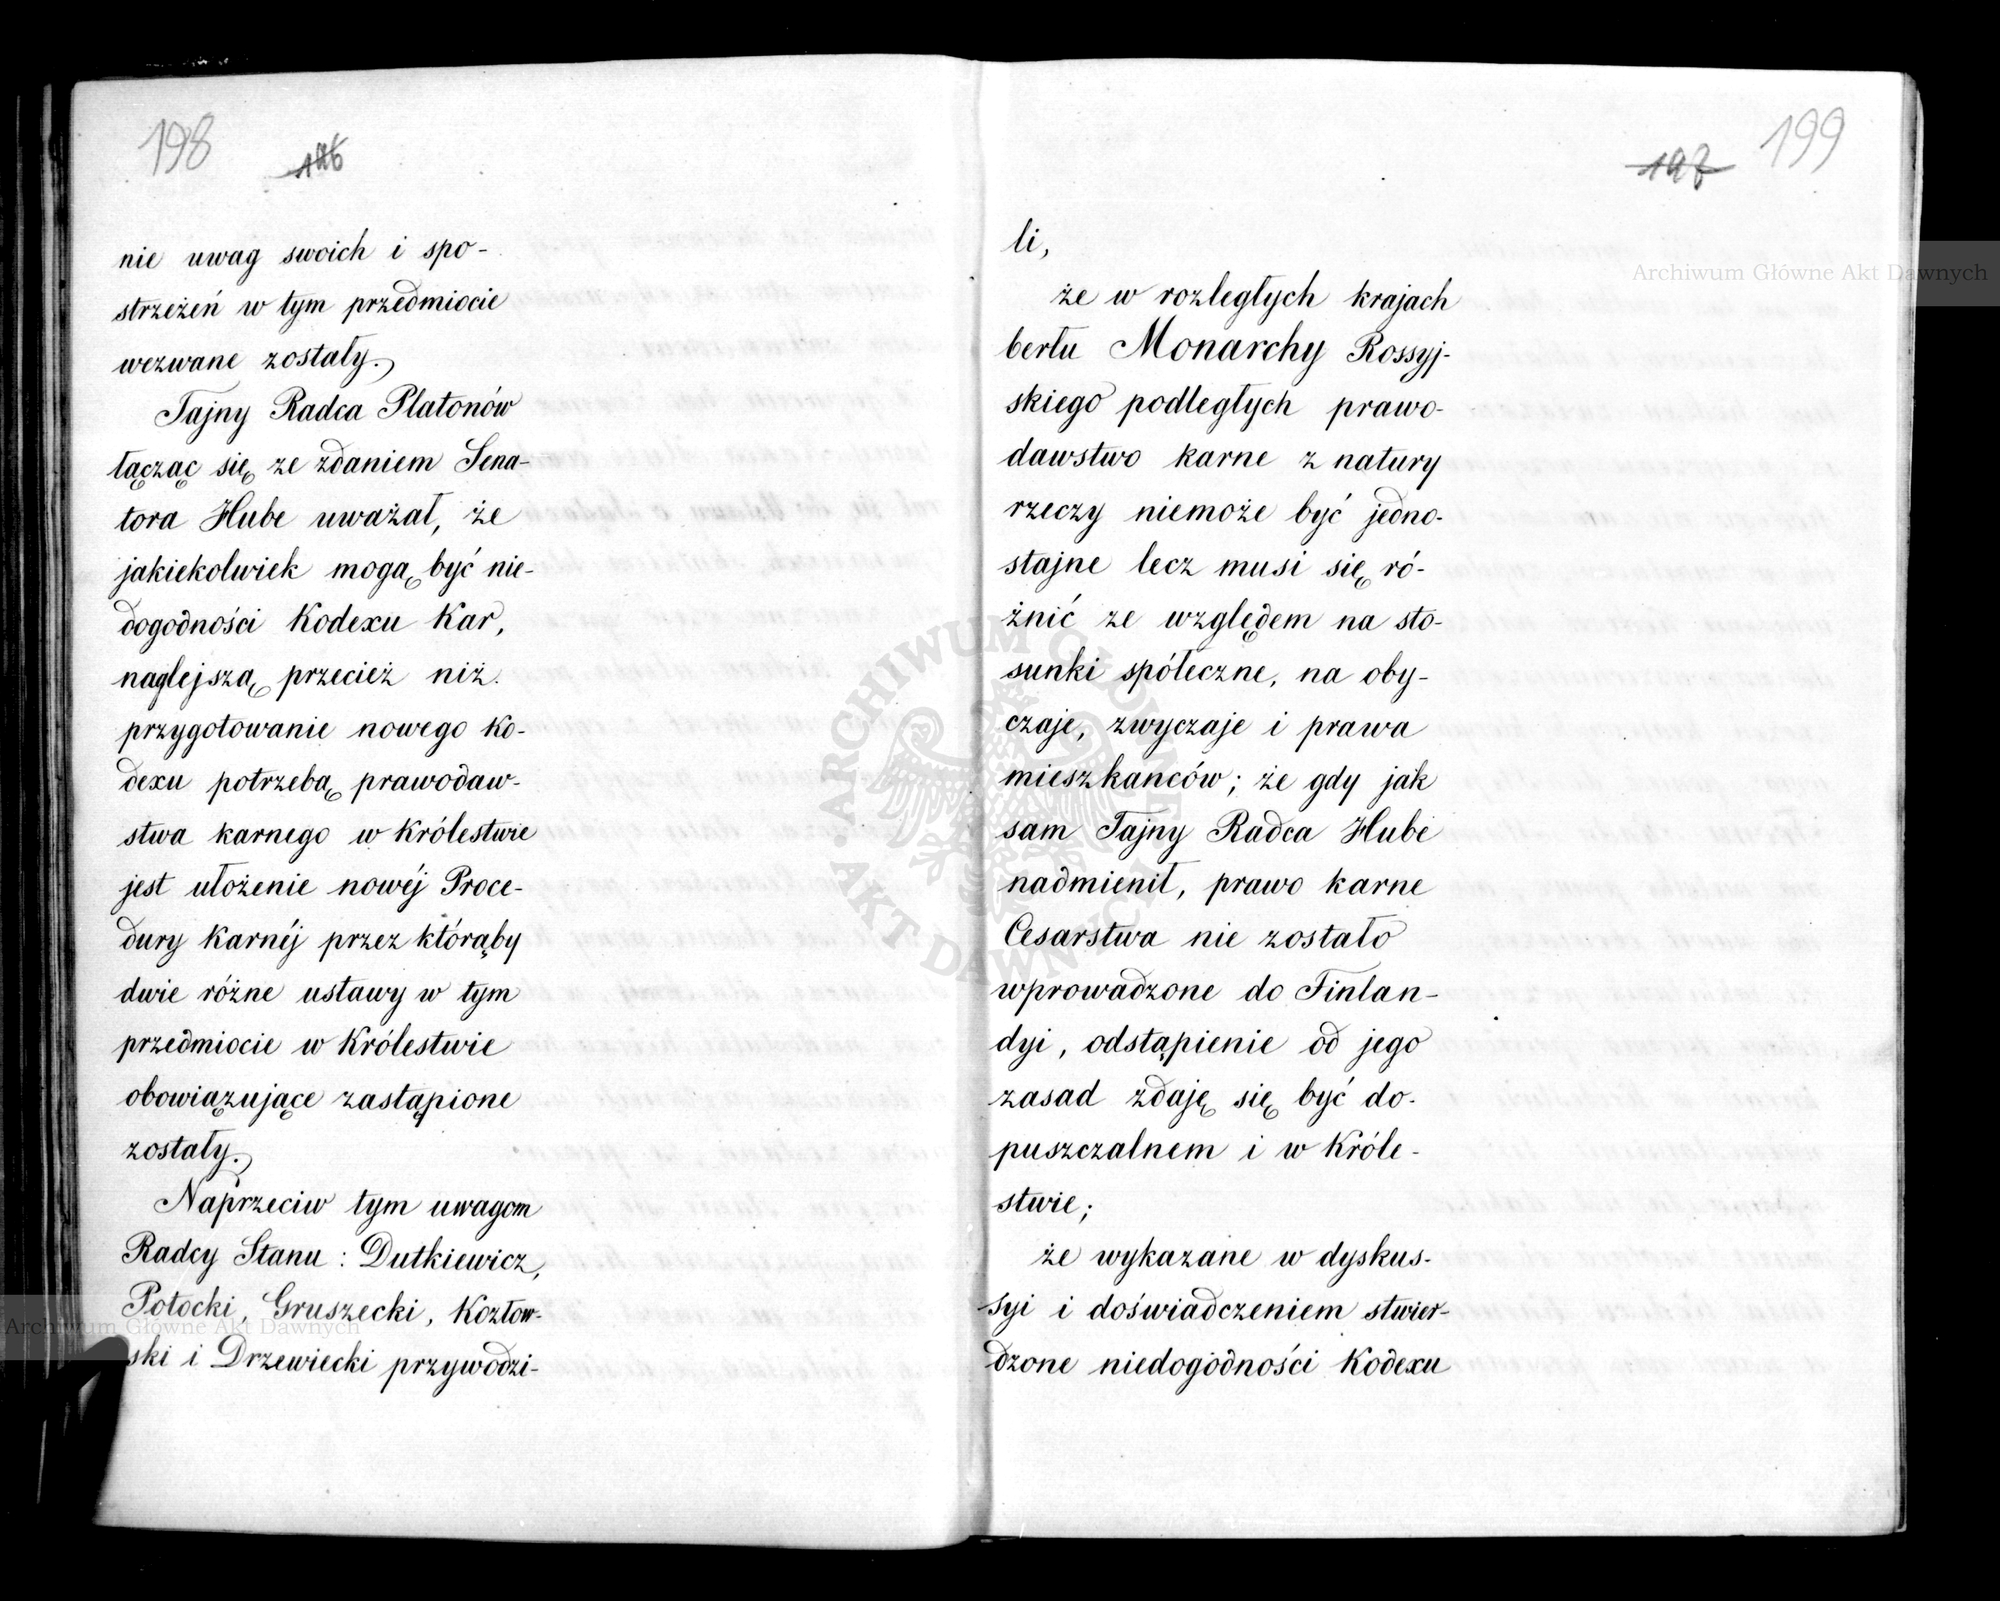 198
196
nie uwag swoich i spo-
strzeżeń w tym przedmiocie
wezwane zostały.
Tajny Radca Platonów
łącząc się ze zdaniem Sena-
tora Hube uważał, że
jakiekolwiek mogą być nie-
dogodności Kodexu Kar,
naglejszą przecież niż
przygotowanie nowego Ko-
dexu potrzebą prawodaw-
stwa karnego w Królestwie
jest ułożenie nowéj Proce-
dury Karnéj przez którąby
dwie różne ustawy w tym
przedmiocie w Królestwie
obowiązujące zastąpione
zostały.
Naprzeciw tym uwagom
Radcy Stanu : Dutkiewicz,
Potocki, Gruszecki, Kozłow-
ski i Drzewiecki przywodzi-
199
197
li,
że w rozległych krajach
berłu Monarchy Rossyj-
skiego podległych prawo-
dawstwo karne z natury
rzeczy niemoże być jedno-
stajne lecz musi się ró-
żnić ze względem na sto-
sunki spółeczne, na oby-
czaje, zwyczaje i prawa
mieszkanców; że gdy jak
sam Tajny Radca Hube
nadmienił, prawo karne
Cesarstwa nie zostało
wprowadzone do Finlan-
dyi, odstąpienie od jego
zasad zdaję się być do-
puszczalnem i w Króle-
stwie;
że wykazane w dyskus-
syi i doświadczeniem stwier-
dzone niedogodności Kodexu
Archiwum Główne Akt Dawnych
Archiwum Główne Akt Dawnych
ARCHIWUM GŁÓWNE
AKT DAWNYCH